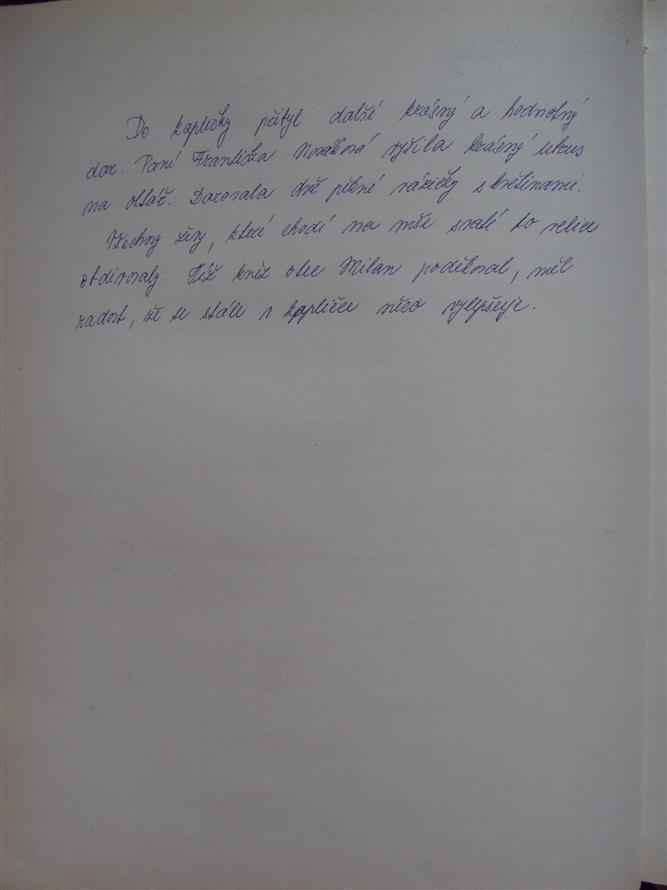 Do kapličky přibyl další krásný a hodnotný
dar. Paní Františka Nováková vyšila krásný ubrus
na oltář. Darovala dvě pěkné vázičky s květinami.
Všechny ženy, které chodí na mše svaté to velice
obdivovaly. Též kněz otec Milan poděkoval, měl
radost, že se stále v kapličce něco vylepšuje.